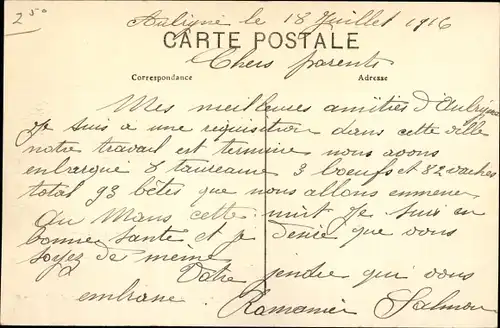 2 50
Aubigné le 18 Juillet 1916
CARTE POSTALE
Chers parents
Correspondance Adresse
Mes meilleures amitiés d'Aubigné
Je suis a une requisition dans cette ville
notre travail est termine nous avons
enbarque 8 taureaux 3 boeufs et 82 vaches
total 93 bêtes que nous allons enmener
au Mans cette nuit Je suis en
bonne santé et je désire que vous
soyez de même
Votre jendre qui vous
embrasse Salmon